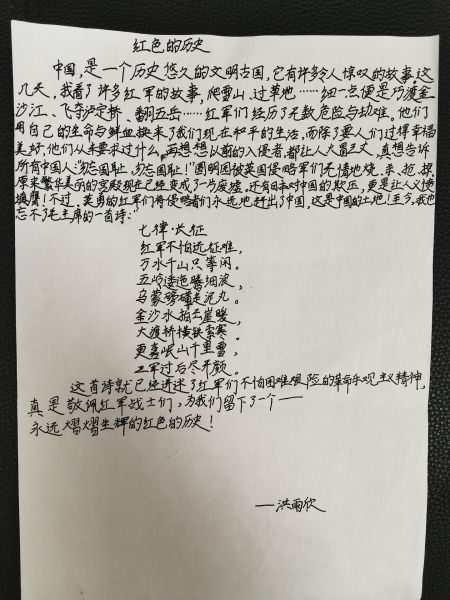 红色的历史
中国,是一个历史悠久的文明古国,它有许多令人惊叹的故事。这
几天,我看了许多红军的故事,爬雪山、过草地……细一点便是巧渡金
沙江、飞夺泸定桥、翻五岳……红军们经历了无数危险与劫难,他们
用自己的生命与鲜血换来了我们现在和平的生活,而除了要人们过得幸福
美好,他们从未要求过什么。再想想以前的入侵者,都让人火冒三丈,真想告诉
所有中国人:“勿忘国耻,勿忘国耻!”圆明园被英国侵略军们无情地烧、杀、抢、掠,
原来繁华美丽的宫殿现在已经变成了一片废墟,还有日本对中国的欺压,更是让人义愤
填膺!不过,英勇的红军们将侵略者们永远地赶出了中国,这是中国的土地!至今,我也
忘不了毛主席的一首诗:“
七律·长征
红军不怕远征难,
万水千山只等闲。
五岭逶迤腾细浪,
乌蒙磅礴走泥丸。
金沙水拍云崖暖,
大渡桥横铁索寒。
更喜岷山千里雪,
三军过后尽开颜。
这首诗就已经讲述了红军们不怕困难艰险的革命乐观主义精神,
真是敬佩红军战士们,为我们留下了一个——
永远熠熠生辉的红色的历史!
——洪雨欣